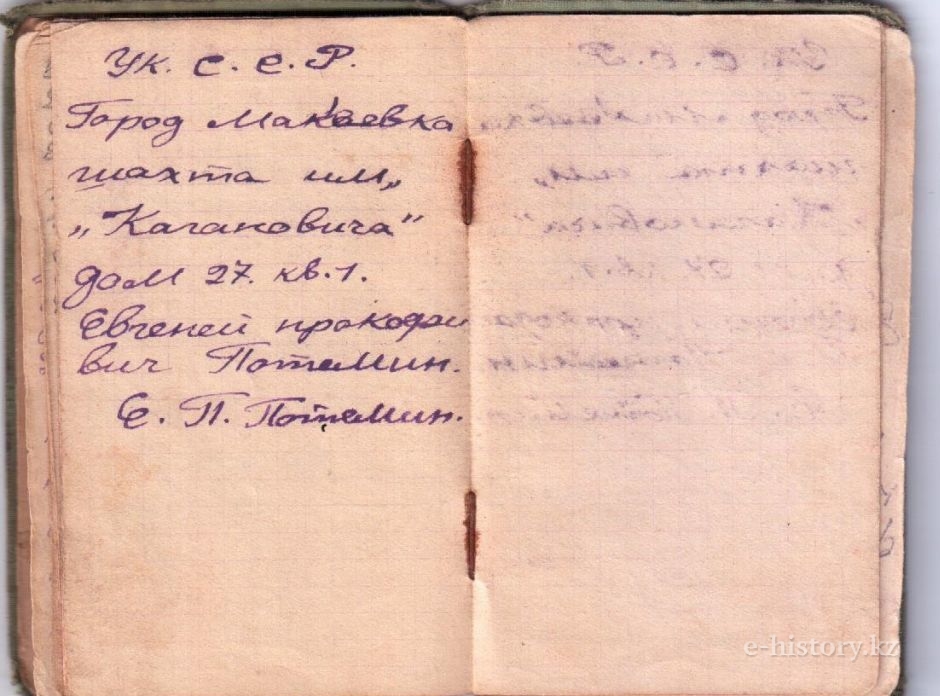 Ук. С. С. Р.
Город Макеевка
шахта им„
„Кагановича“
дом 27. кв. 1.
Евгений прокофи
вич Потемин.
Е. П. Потемин.
e-history.kz